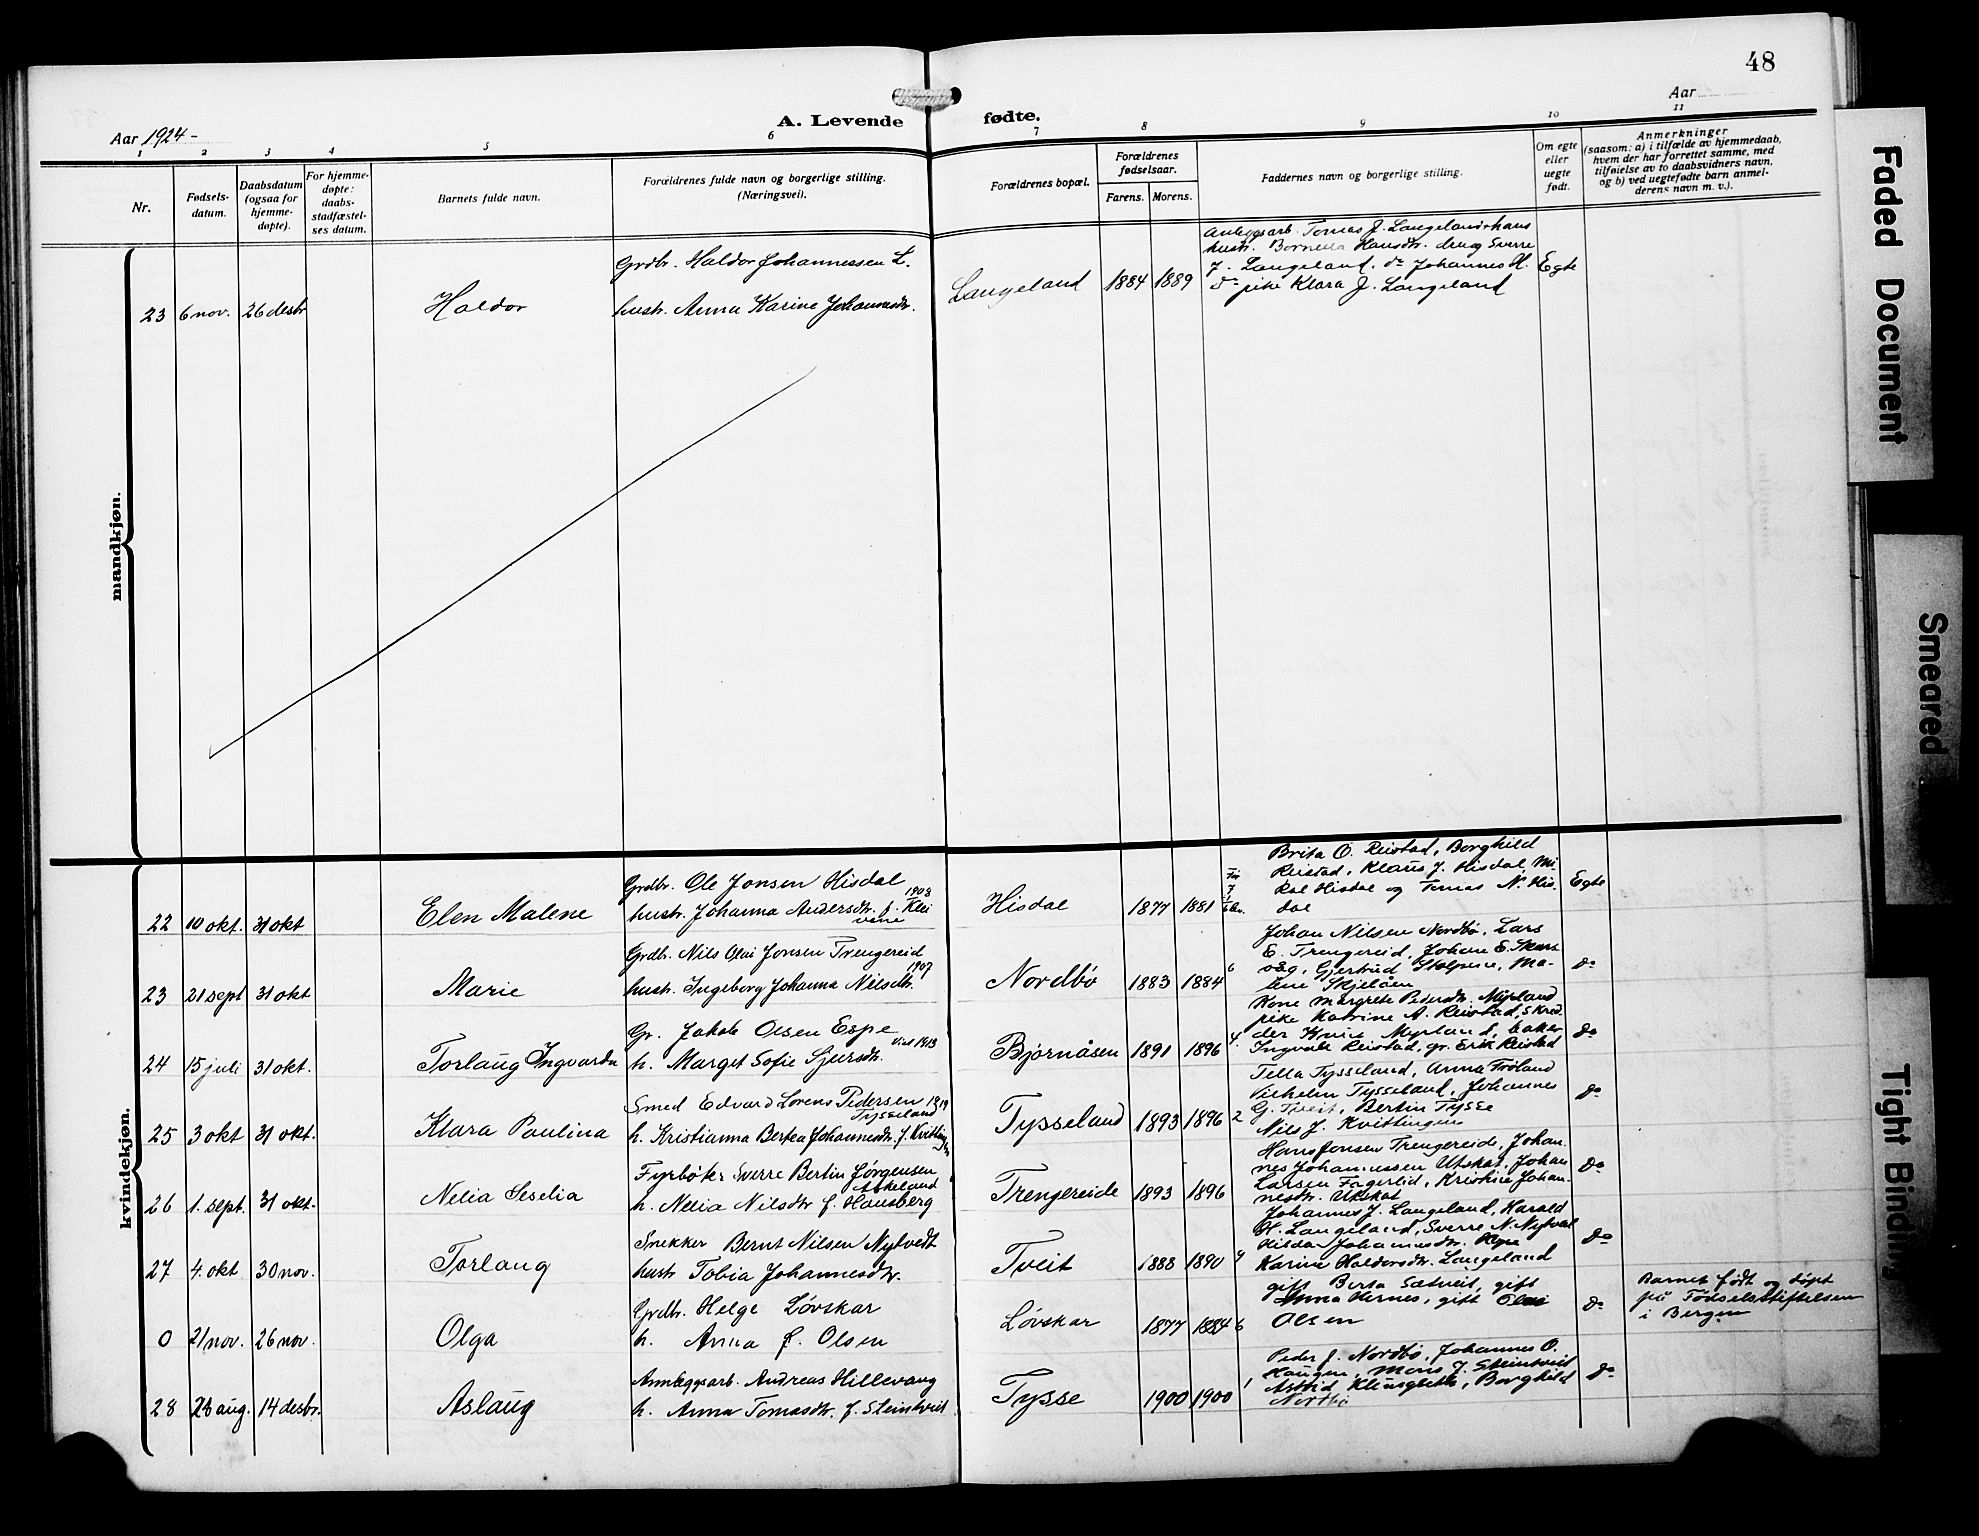 48
Aar 1924-
A. Levende
fødte.
Aar
1 2 3 4 5 6 7 8 9 10 11
Nr.
Fødsels-
datum.
Daabsdatum
(ogsaa for
hjemme-
døpte).
For hjemme-
døpte:
daabs-
stadfæstel-
ses datum.
Barnets fulde navn.
Forældrenes fulde navn og borgerlige stilling.
(Næringsvei).
Forældrenes bopæl.
Forældrenes
fødselsaar.
Farens. Morens.
Faddernes navn og borgerlige stilling.
Om egte
eller
uegte
født.
Anmerkninger
(saasom: a) i tilfælde av hjemmedaab,
hvem der har forrettet samme, med
tilføielse av to daabsvidners navn,
og b) ved uegtefødte barn anmel-
derens navn m. v.).
mandkjøn.
23 6 nov. 26 desbr Haldor
Grdbr. Haldor Johannessen L.
hustr. Anna Karine Johannesdr.
Langeland 1884 1889
Anleggsarb. Tomas J. Langeland & hans
hustr. Hansdr. Sverre
J. Langeland. do Johannes H.
do pike Klara J. Langeland
Egte
kvindekjøn.
22 10 okt. 31 okt Elen Malene
Grdbr. Ole Jonsen Hisdal
1903
hustr. Johanna Andersdr. f.
Hisdal 1877 1881
Brita O. Reistad, Borghild
Reistad, Klaus J. Hisdal, Mi-
kal Hisdal og Tomas N. His-
dal
Egte
23 21 sept 31 okt Marie
Grdbr. Nils Olai Jonsen Trengereid
1907
hustr. Ingeborg Johanna Nilsdtr.
Nordbø 1883 1884 6
Johan Nilsen Nordbø, Lars
E. Trengereid, Johan E. Skars
våg, Gjertrud Stolpene, Ma-
lene Skjelåen
do
24 15 juli 31 okt. Torlaug Ingvarda
Gr. Jakob Olsen Espe
viet 1913
h. Marget Sofie Sjursdr.
Bjørnåsen 1891 1896 4.
Kone Margrete Pedersdr. Myrland
pike Katrine A. Reistad, Skred
der Knut Myrland, baker
Ingvald Reistad, gr. Erik Reistad
do
25 3 okt 31 okt. Klara Paulina
Smed Edvard Lorens Pedersen 1919
Tysseland
h. Kristianna Bertea Johannesdr. f. Kvittingen
Tysseland 1893 1896 2
Tella Tysseland, Anna Frøland
Vilhelm Tysseland, Johannes
G. Tveit, Bertin Tysse
Nils J. Kvittingen
do
26 1. sept. 31 okt. Nelia Seselia
Fyrbøter Sverre Bertin Jørgensen
Askeland
h. Nelia Nilsdtr f. Hausberg
Trengereide 1893 1896
Hans Jonsen Trengereide, Johan-
nes Johannessen Utskot, Johan
Larsen Fagerlid, Kristine Johan-
nesdr. Utskot
do
27 4. okt 30 nov. Torlaug
Snekker Bernt Nilsen Nytvedt
hustr Tobia Johannesdtr.
Tveit 1888 1890 4
Johannes J. Langeland, Harald
H. Langeland, Sverre N. Nytvet
Hilda Johannesdtr.
Karine Haldorsdtr. Langeland
do
0 21 nov. 26 nov. Olga
Grdbr. Helge Løvskar
h. Anna f. Olsen
Løvskar 1877 1884 6
gift Berta Sætveit, gift
Anna Hernes, gift
Olsen
do
Barnet født og døpt
på Fødselsstiftelsen
i Bergen
28 26 aug. 14 desbr. Aslaug
Annleggsarb. Andreas Hillevang
h. Anna Tomasdtr. f. Steintveit
Tysse 1900 1900 1
Peder J. Nordbø, Johannes O.
Haugen, Mons J. Steintveit
Astrid, Borghild
Nordbø
do
Faded Document
Smeared
Tight Binding